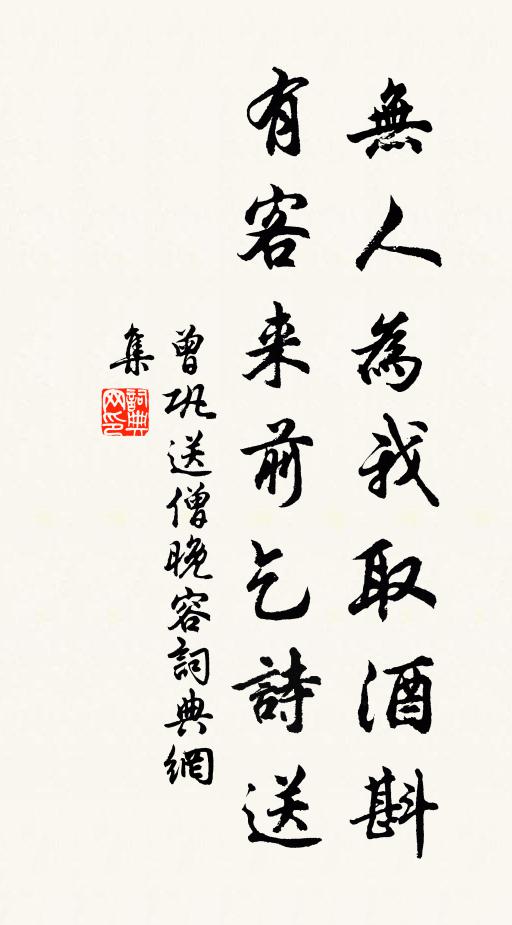 無人為我取酒斟
有客来前乞詩送
曾巩送僧晚容詞典網
集
詞典网印